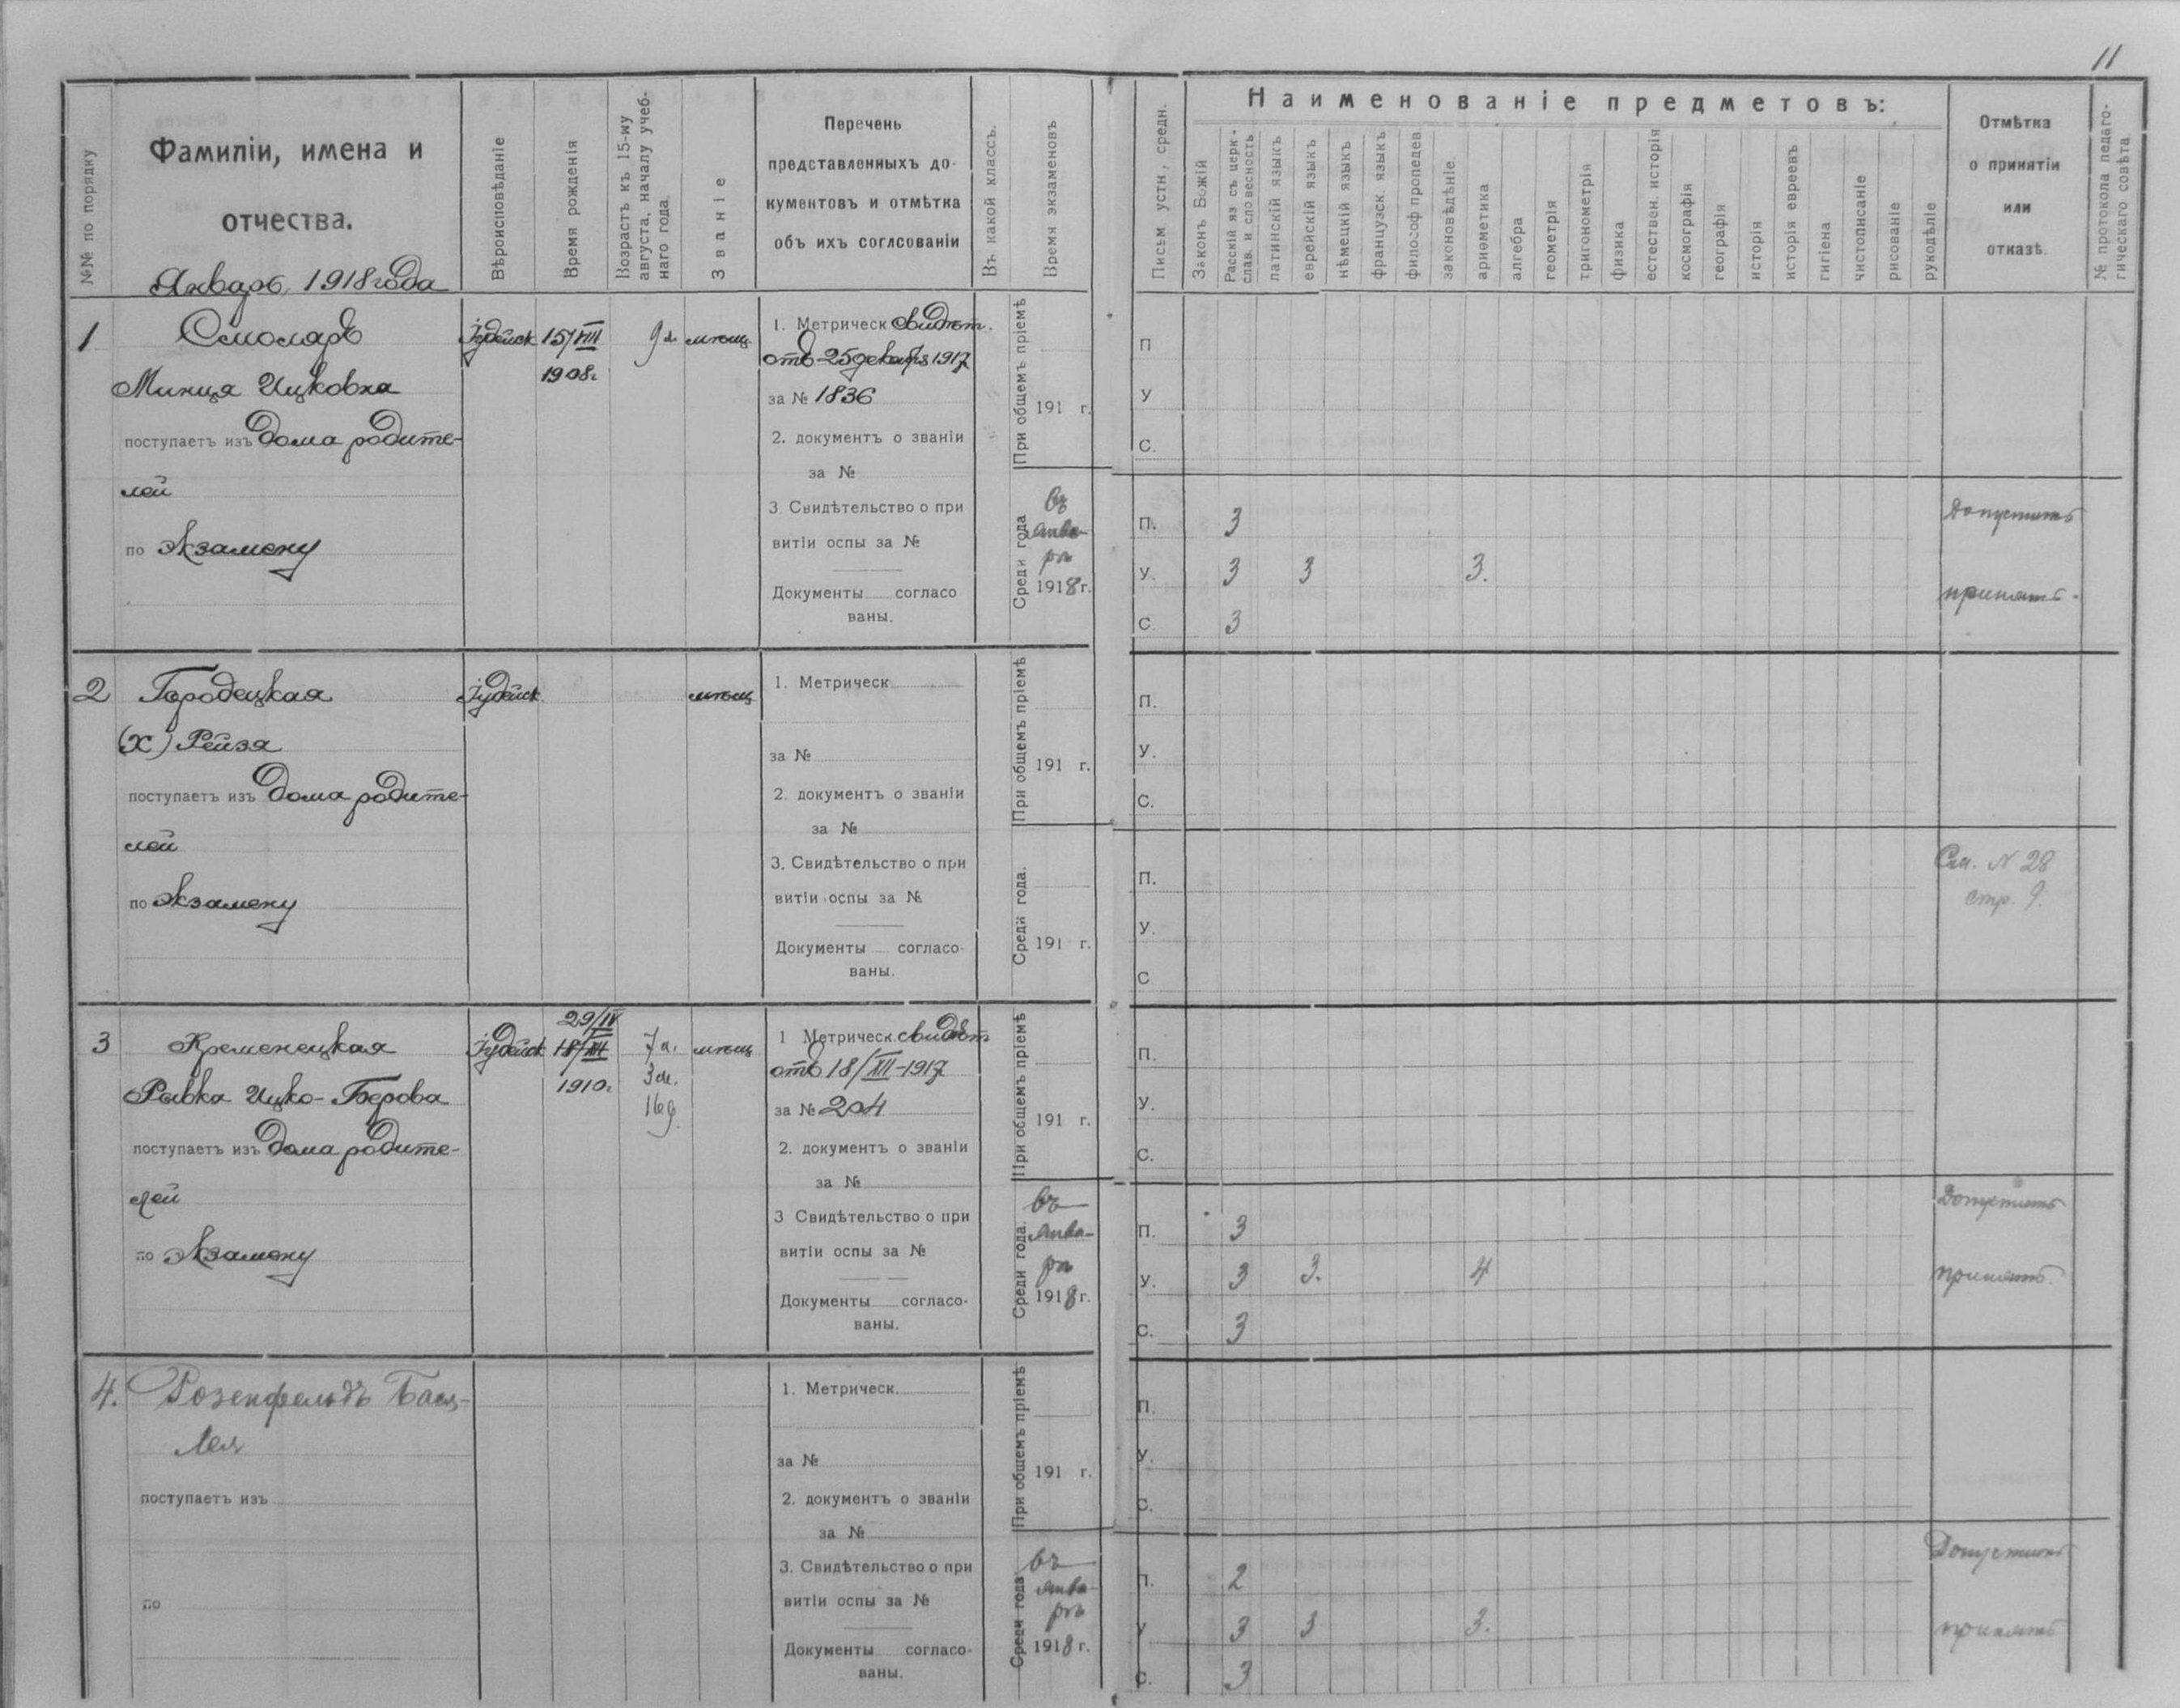 11
№№ по порядку
Фамиліи, имена и
отчества.
Январь 1918 года
Вѣроисповѣданіе
Время рожденія
Возрастъ къ 15-му
августа, началу учеб-
наго года.
Званіе
Перечень
представленныхъ до-
кументовъ и отмѣтка
объ ихъ соглсованіи
Въ какой классъ.
Время экзаменовъ
Письм. устн, средн.
Наименованіе предметовъ:
Законъ Божій
Расскій яз съ церк-
слав. и словесность
латинскій языкъ
еврейскій языкъ
нѣмецкій языкъ
французск. языкъ
философ пропедев
законовѣдѣніе.
ариѳметика
алгебра
геометрія
тригонометрія
физика
естествен. исторія
космографія
географія
исторія
исторія евреевъ
гигіена
чистописаніе
рисованіе
рукодѣліе
Отмѣтка
о принятіи
или
отказѣ.
№ протокола педаго-
гическаго совѣта
1 Смоляръ Іудейск 15/VIII 9 л мѣщ. 1. Метрическ свидѣт.
1908г отъ 25 декабря 1917
Минця Ицковна за № 1836
поступаетъ изъ дома родите- 2. документъ о званіи
лей за №
3 Свидѣтельство о при
по экзамену витіи оспы за №
Документы согласо
ваны.
При общемъ пріемѣ 191 г.
Среди года въ
янва-
рѣ
1918 г.
П
У
С.
П. 3 Допустить
У. 3 3 3.
принять.
С 3
2 Городецкая Іудейск мѣщ 1. Метрическ
(Х) Рейзя за №
поступаетъ изъ дома родите- 2. документъ о званіи
лей за №
3. Свидѣтельство о при
по экзамену витіи оспы за №
Документы согласо-
ваны.
При общемъ пріемѣ 191 г.
Среди года. 191 г.
П.
У.
С.
П. См. N 28
стр. 9.
У.
С
3 Кременецкая Іудейск 29/IV
18/XII
1910г 7 л.
3 м.
16 д. мѣщ 1 Метрическ. свидѣт
отъ 18/XII-1917
Рывка Ицко-Берова за № 204
поступаетъ изъ дома родите- 2. документъ о званіи
лей за №
3 Свидѣтельство о при
по экзамену витіи оспы за №
Документы согласо-
ваны.
При общемъ пріемѣ 191 г.
Среди года. въ
янва-
рѣ
1918 г.
П.
У.
С.
П. 3 Допустить
У. 3 3. 4 принять.
С. 3
4. Розенфельдъ Бася- 1. Метрическ.
Лея
за №
поступаетъ изъ 2. документъ о званіи
за №
3. Свидѣтельство о при
по витіи оспы за №
Документы согласо-
ваны.
При общемъ пріемѣ 191 г.
Среди года въ
янва-
рѣ
1918 г.
П.
У.
С.
П. 2 Допустить
У 3 3 3. принять
С. 3